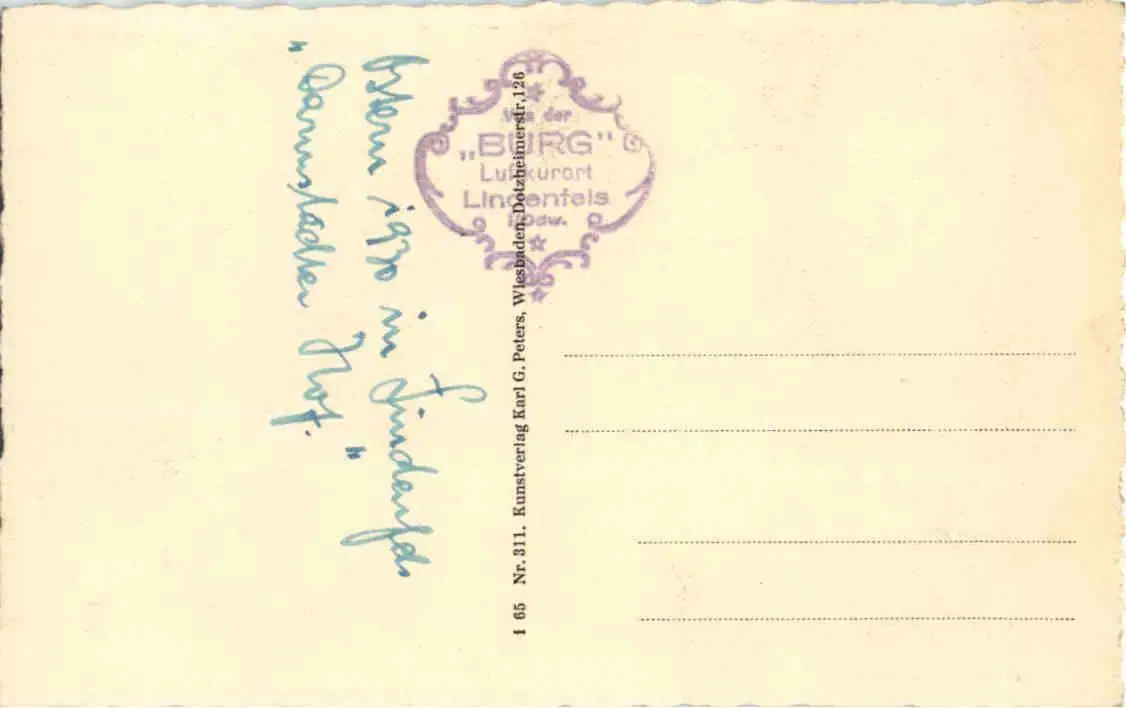 Ostern 1930 in Lindenfels
"Darmstädter Hof."
Von der
„BURG"
Luftkurort
Lindenfels
i. Odw.
I 65 Nr. 311. Kunstverlag Karl G. Peters, Wiesbaden, Dotzheimerstr. 126